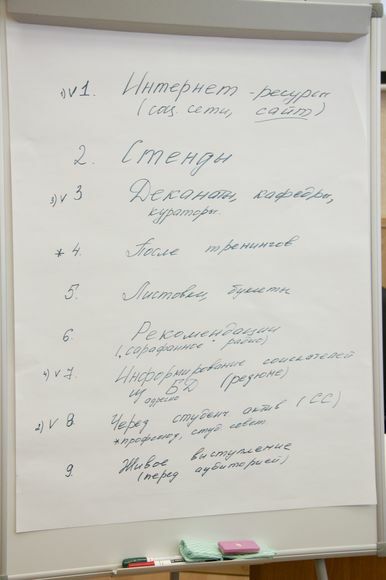 1) v 1. Интернет - ресурсы
(соц. сети, сайт)
2. Стенды
3) v 3 Деканаты, кафедры,
кураторы.
* 4. После тренингов
5. Листовки, буклеты
6. Рекомендации
("сарафанное" радио)
4) v 7. Информирование соискателей
из БД (резюме)
адресно
2) v 8. Через студенч актив (СС)
* профсоюз, студ совет
9. Живое выступление
(перед аудиторией)